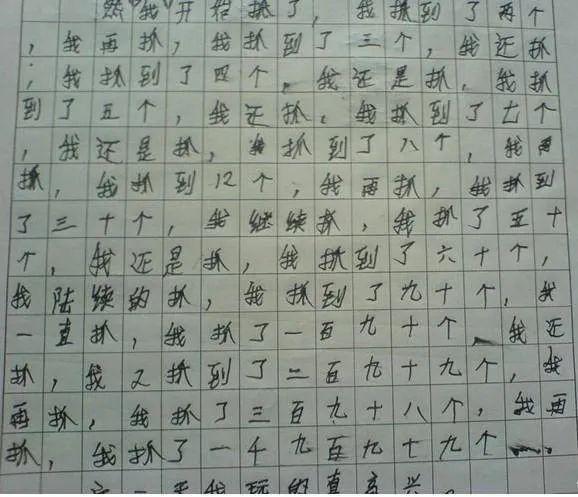 然"我"开始抓了,我抓到了两个
,我再抓,我抓到了三个,我还抓
,我抓到了四个,我还是抓,我抓
到了五个,我还抓,我抓到了七个
,我还是抓,我抓到了八个,我再
抓,我抓到12个,我再抓,我抓到
了三十个,我继续抓,我抓了五十
个,我还是抓,我抓到了六十个,
我陆续的抓,我抓到了九十个,我
一直抓,我抓了一百九十个,我还
抓,我又抓到了二百九十九个,我
再抓,我抓了三百九十八个,我再
抓,我抓了一千九百九十九个
我玩的真高兴